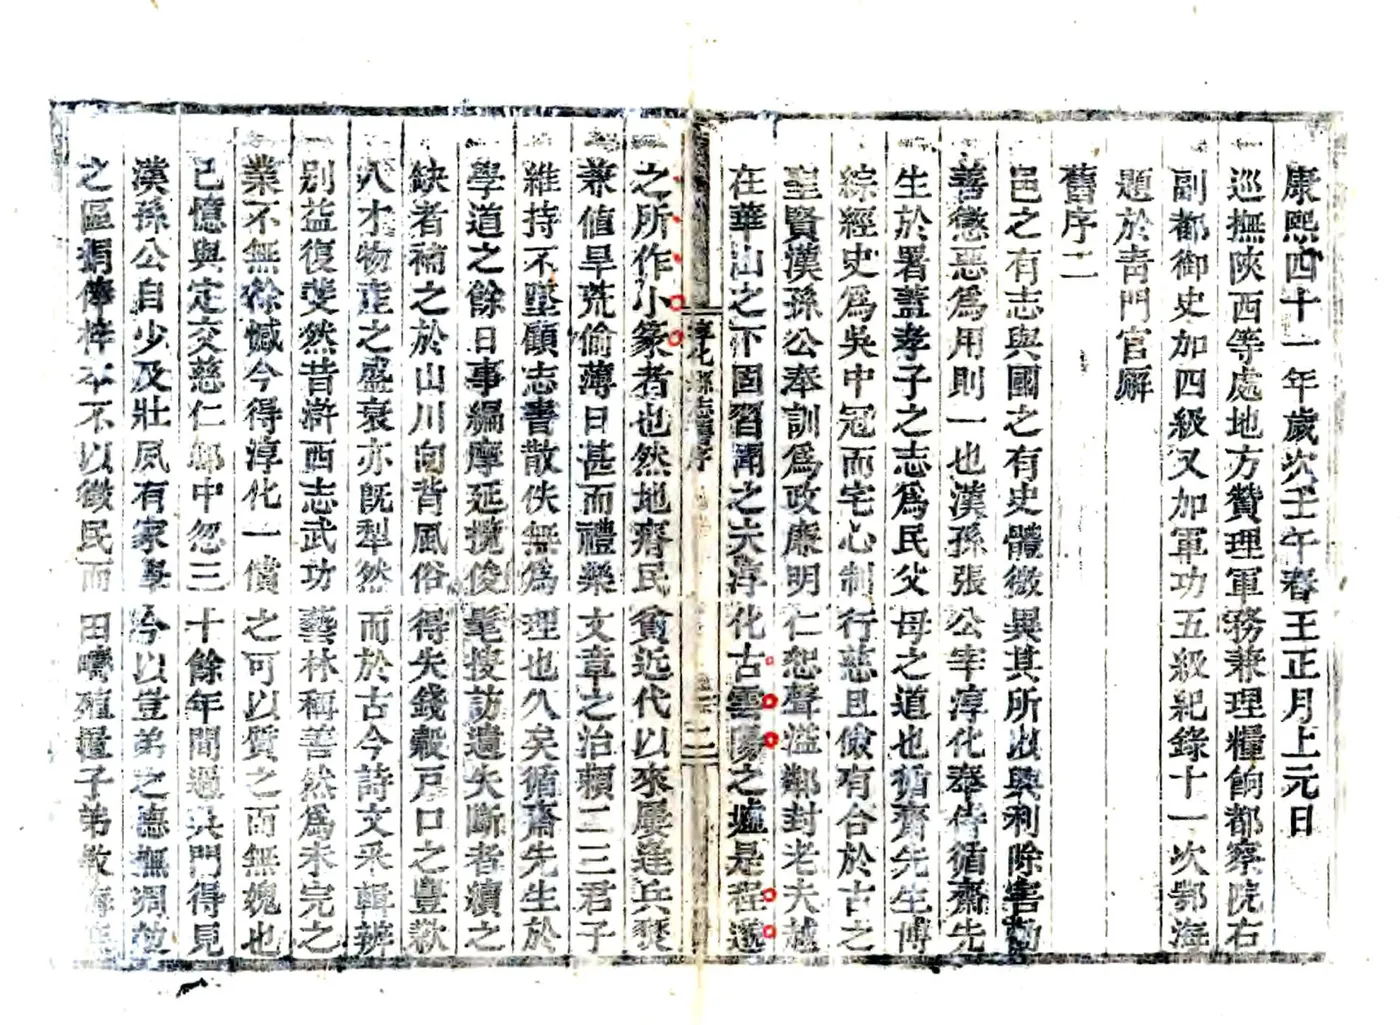 康熙四十一年歲次壬午春王正月上元日
巡撫陝西等處地方贊理軍務兼理糧餉都察院右
副都御史加四級又加軍功五級紀錄十一次鄂海
題於青門官廨
舊序二
邑之有志與國之有史體微異其所以興利除害勸
善懲惡為用則一也漢孫張公宰淳化奉侍循齋先
生於署蓋孝子之志為民父母之道也循齋先生博
綜經史為吳中冠而宅心制行慈且儉有合於古之
聖賢漢孫公奉訓為政廉明仁恕聲溢鄰封老夫越
在華山之下固習聞之夫淳化古雲陽之墟是程邈
淳化縣志舊序
二
之所作小篆者也然地瘠民貧近代以來屢逢兵燹
兼值旱荒偷薄日甚而禮樂文章之治賴二三君子
維持不墜顧志書散佚無為理也久矣循齋先生於
學道之餘日事編摩延攬俊髦搜訪遺失斷者續之
缺者補之於山川向背風俗得失錢穀戶口之豐歉
人才物產之盛衰亦既犁然而於古今詩文采輯辨
別益復斐然昔滸西志武功藝林稱善然為未完之
業不無餘憾今得淳化一償之可以質之而無媿也
已憶與定交慈仁邸中忽三十餘年間過吳門得見
漢孫公自少及壯夙有家學今以豈弟之德撫凋劫
之區捐俸梓本不以徵民而田疇殖量子弟教誨